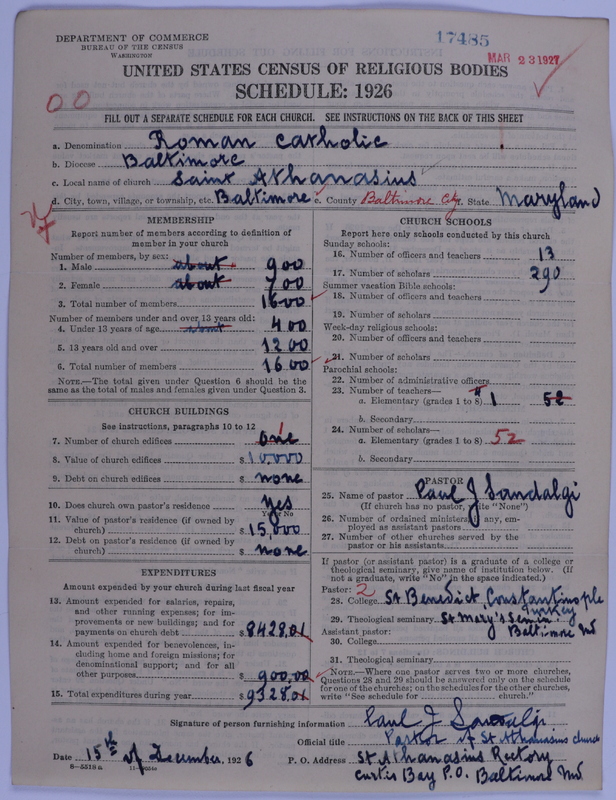 DEPARTMENT OF COMMERCE
BUREAU OF THE CENSUS
WASHINGTON
17485
MAR 23 1927
UNITED STATES CENSUS OF RELIGIOUS BODIES
SCHEDULE: 1926
00
FILL OUT A SEPARATE SCHEDULE FOR EACH CHURCH. SEE INSTRUCTIONS ON THE BACK OF THIS SHEET
a. Denomination Roman Catholic
b. Diocese Baltimore
c. Local name of church Saint Athanasius
d. City, town, village, or township, etc. Baltimore e. County Baltimore City State Maryland
MEMBERSHIP
Report number of members according to definition of
member in your church
Number of members, by sex:
1. Male about 900
2. Female about 700
3. Total number of members 1600
Number of members under and over 13 years old:
4. Under 13 years of age about 400
5. 13 years old and over 1200
6. Total number of members 1600
NOTE.—The total given under Question 6 should be the
same as the total of males and females given under Question 3.
CHURCH BUILDINGS
See instructions, paragraphs 10 to 12
7. Number of church edifices one 1
8. Value of church edifices $10,000
9. Debt on church edifices $ none
10. Does church own pastor's residence yes
Yes or No
11. Value of pastor's residence (if owned by
church) $15,000
12. Debt on pastor's residence (if owned by
church) $ none
EXPENDITURES
Amount expended by your church during last fiscal year
13. Amount expended for salaries, repairs,
and other running expenses; for im-
provements or new buildings; and for
payments on church debt $8428.01
14. Amount expended for benevolences, in-
cluding home and foreign missions; for
denominational support; and for all
other purposes $900,00
15. Total expenditures during year $9328.01
CHURCH SCHOOLS
Report here only schools conducted by this church
Sunday schools:
16. Number of officers and teachers 13
17. Number of scholars 290
Summer vacation Bible schools:
18. Number of officers and teachers
19. Number of scholars
Week-day religious schools:
20. Number of officers and teachers
21. Number of scholars
Parochial schools:
22. Number of administrative officers
23. Number of teachers—
a. Elementary (grades 1 to 8) 1 52
b. Secondary
24. Number of scholars—
a. Elementary (grades 1 to 8) 52
b. Secondary
PASTOR
25. Name of pastor Paul J Sandalgi
(If church has no pastor, write "None")
26. Number of ordained ministers, if any, em-
ployed as assistant pastors
27. Number of other churches served by the
pastor or his assistants
If pastor (or assistant pastor) is a graduate of a college or
theological seminary, give name of institution below. (If
not a graduate, write "No" in the space indicated.)
Pastor: 2
28. College St Benedict, Constantinople
Turkey
29. Theological seminary St Mary's Semin.
Baltimore Md
Assistant pastor:
30. College
31. Theological seminary
NOTE.—Where one pastor serves two or more churches,
Questions 28 and 29 should be answered only on the schedule
for one of the churches; on the schedules for the other churches,
write "See schedule for church."
Signature of person furnishing information Paul J Sandalgi
Official title Pastor of St Athanasius church
Date 15th of December, 1926 P. O. Address St Athanasius Rectory
Curtis Bay P.O. Baltimore Md.
8—5518a